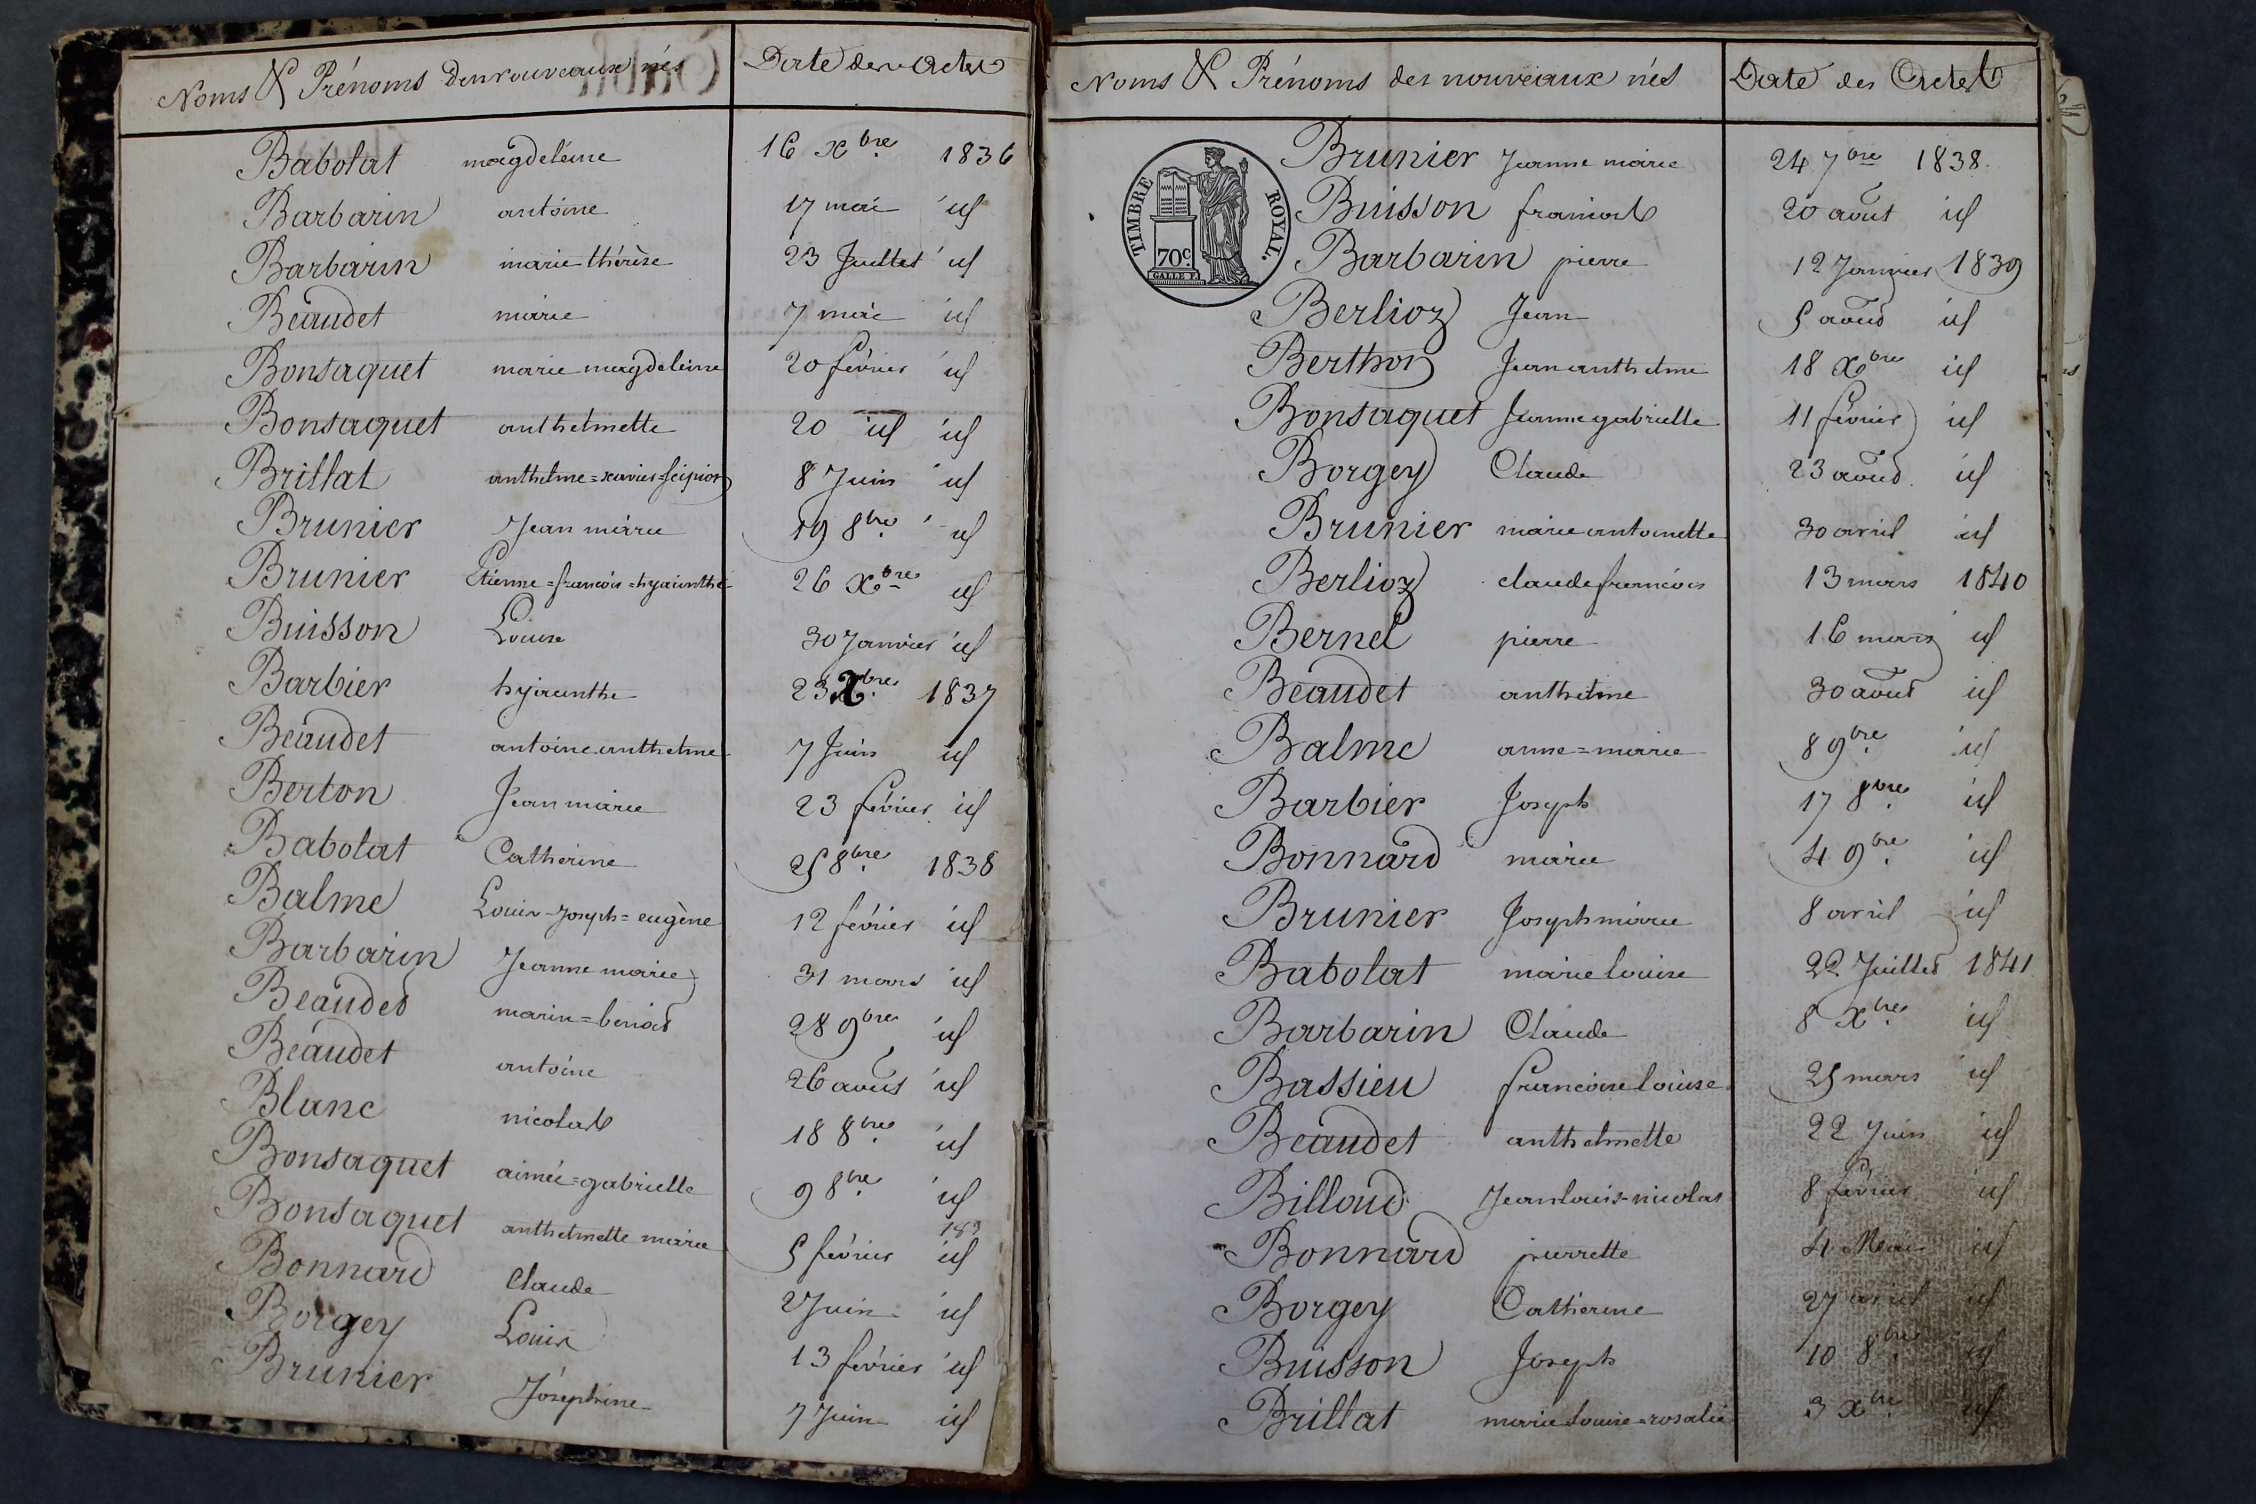 Noms & Prénoms des nouveaux nés Date des Actes
Babolat magdeleine 16 Xbre 1836
Barbarin antoine 17 mai id
Barbarin marie thérèse 23 Juillet id
Beaudet marie 7 mai id
Bonsaquet marie magdeleine 20 février id
Bonsaquet anthelmette 20 id id
Brillat anthelme=xavier=scipion 8 Juin id
Brunier Jean marie 19 8bre id
Brunier Etienne=francois=hyacinthe 26 Xbre id
Buisson Louise 30 Janvier id
Barbier hyacinthe 23 Xbre 1837
Beaudet antoine anthelme 7 Juin id
Berton Jean marie 23 février id
Babolat Catherine 25 8bre 1838
Balme Louis-Joseph=eugène 12 février id
Barbarin Jeanne marie 31 mars id
Beaudet marin=benoit 28 9bre id
Beaudet antoine 26 août id
Blanc nicolas 18 8bre id
Bonsaquet aimée=gabrielle 9 8bre id
Bonsaquet anthelmette marie 5 février id
Bonnard Claude 2 Juin id
Borgey Louis 13 février id
Brunier Joséphine 7 Juin id
Noms & Prénoms des nouveaux nés Date des Actes
TIMBRE ROYAL.
70c.
Brunier Jeanne marie 24 7bre 1838.
Buisson francois 20 août id
Barbarin pierre 12 Janvier 1839
Berlioz Jean 5 août id
Berthon Jean anthelme 18 Xbre id
Bonsaquet Jeanne gabrielle 11 février id
Borgey Claude 23 août id
Brunier marie antoinette 30 avril id
Berlioz claude francois 13 mars 1840
Bernel pierre 16 mars id
Beaudet anthelme 30 août id
Balme anne=marie 8 9bre id
Barbier Joseph 17 8bre id
Bonnard marie 4 9bre id
Brunier Joseph marie 8 avril id
Babolat marie louise 22 Juillet 1841
Barbarin Claude 8 Xbre id
Bassieu francoise louise 25 mars id
Beaudet anthelmette 22 Juin id
Billoud Jean louis-nicolas 8 février id
Bonnard pierrette 4 Mai id
Borgey Catherine 27 avril id
Buisson Joseph 10 8bre id
Brillat marie louise=rosalie 3 Xbre id